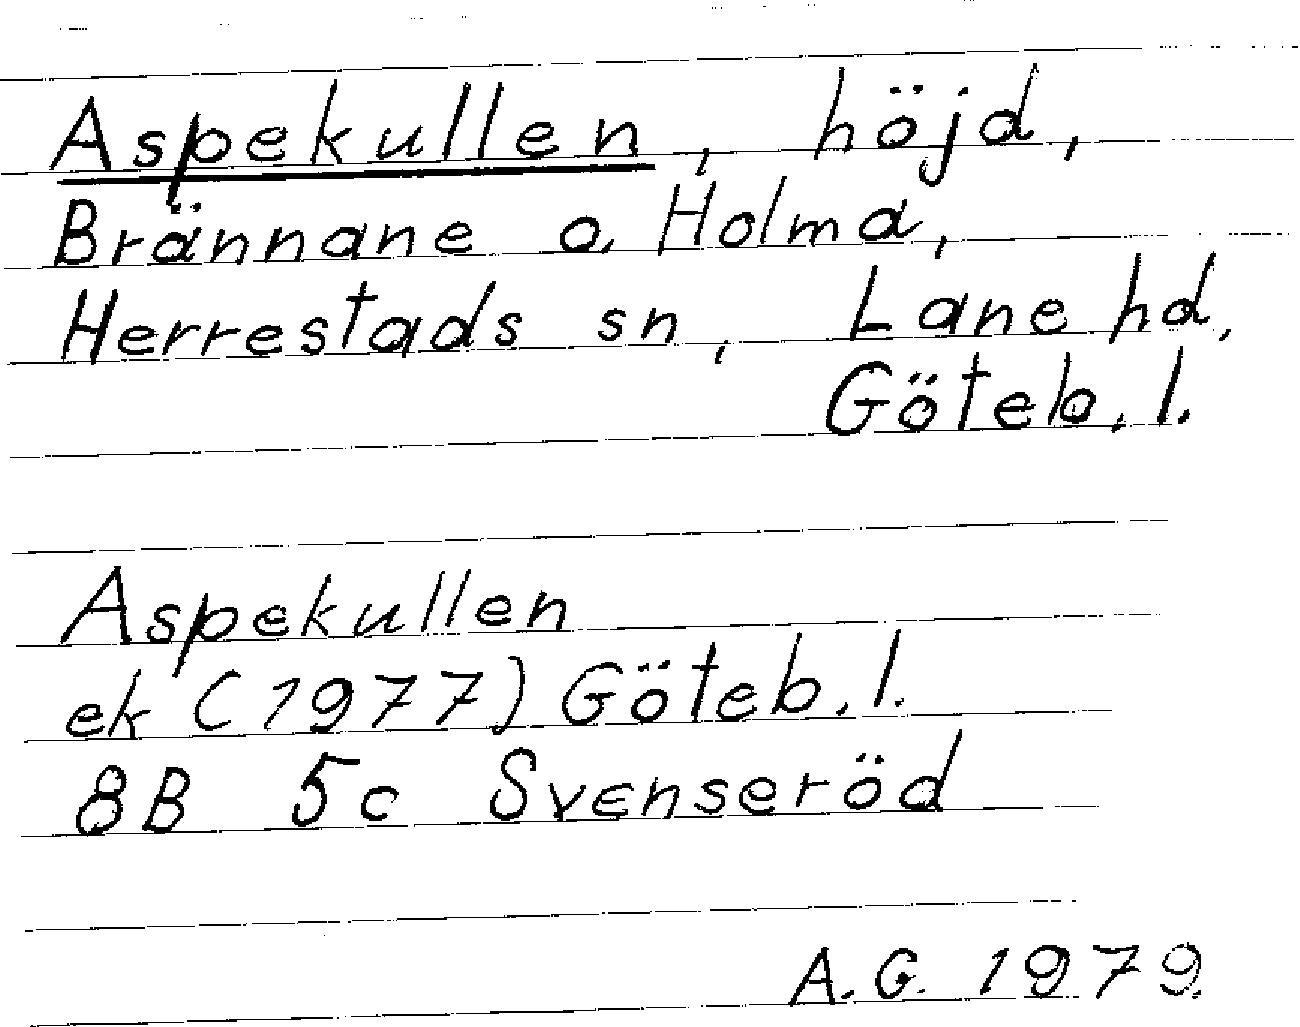 Aspekullen, höjd,
Brännane o. Holma,
Herrestads sn, Lane hd,
Göteb. l.
Aspekullen
ek (1977) Göteb. l.
8B 5c Svenseröd
A.G. 1979.